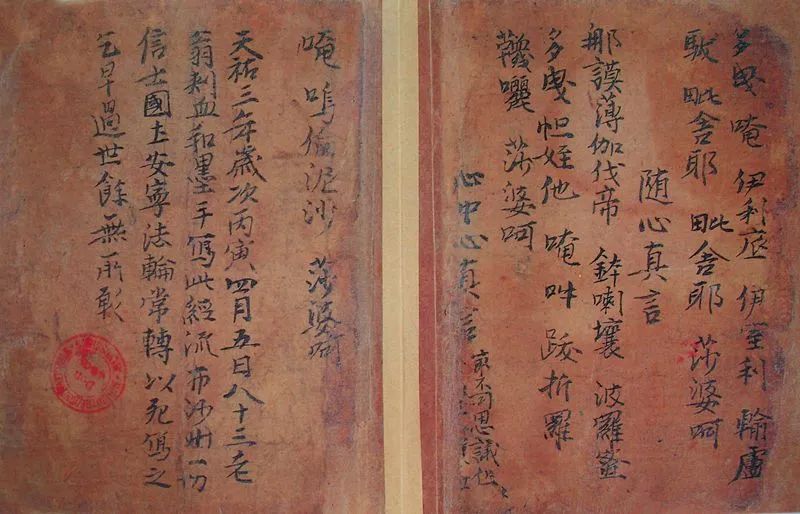 多曳唵 伊利底 伊室利 輸盧
馱毗舍耶 毗舍耶 莎婆呵
随心真言
那謨薄伽伐帝 鉢喇壤 波羅蜜
多曳怛姪他 唵吽 跋折羅
莎婆呵
心中心真言 不可思議
唵 泥沙 莎婆呵
天祐三年歲次丙寅四月五日八十三老
翁刺血和墨手寫此經流布沙州一切
信士國土安寧法輪常轉以死寫之
乞早過世餘無所